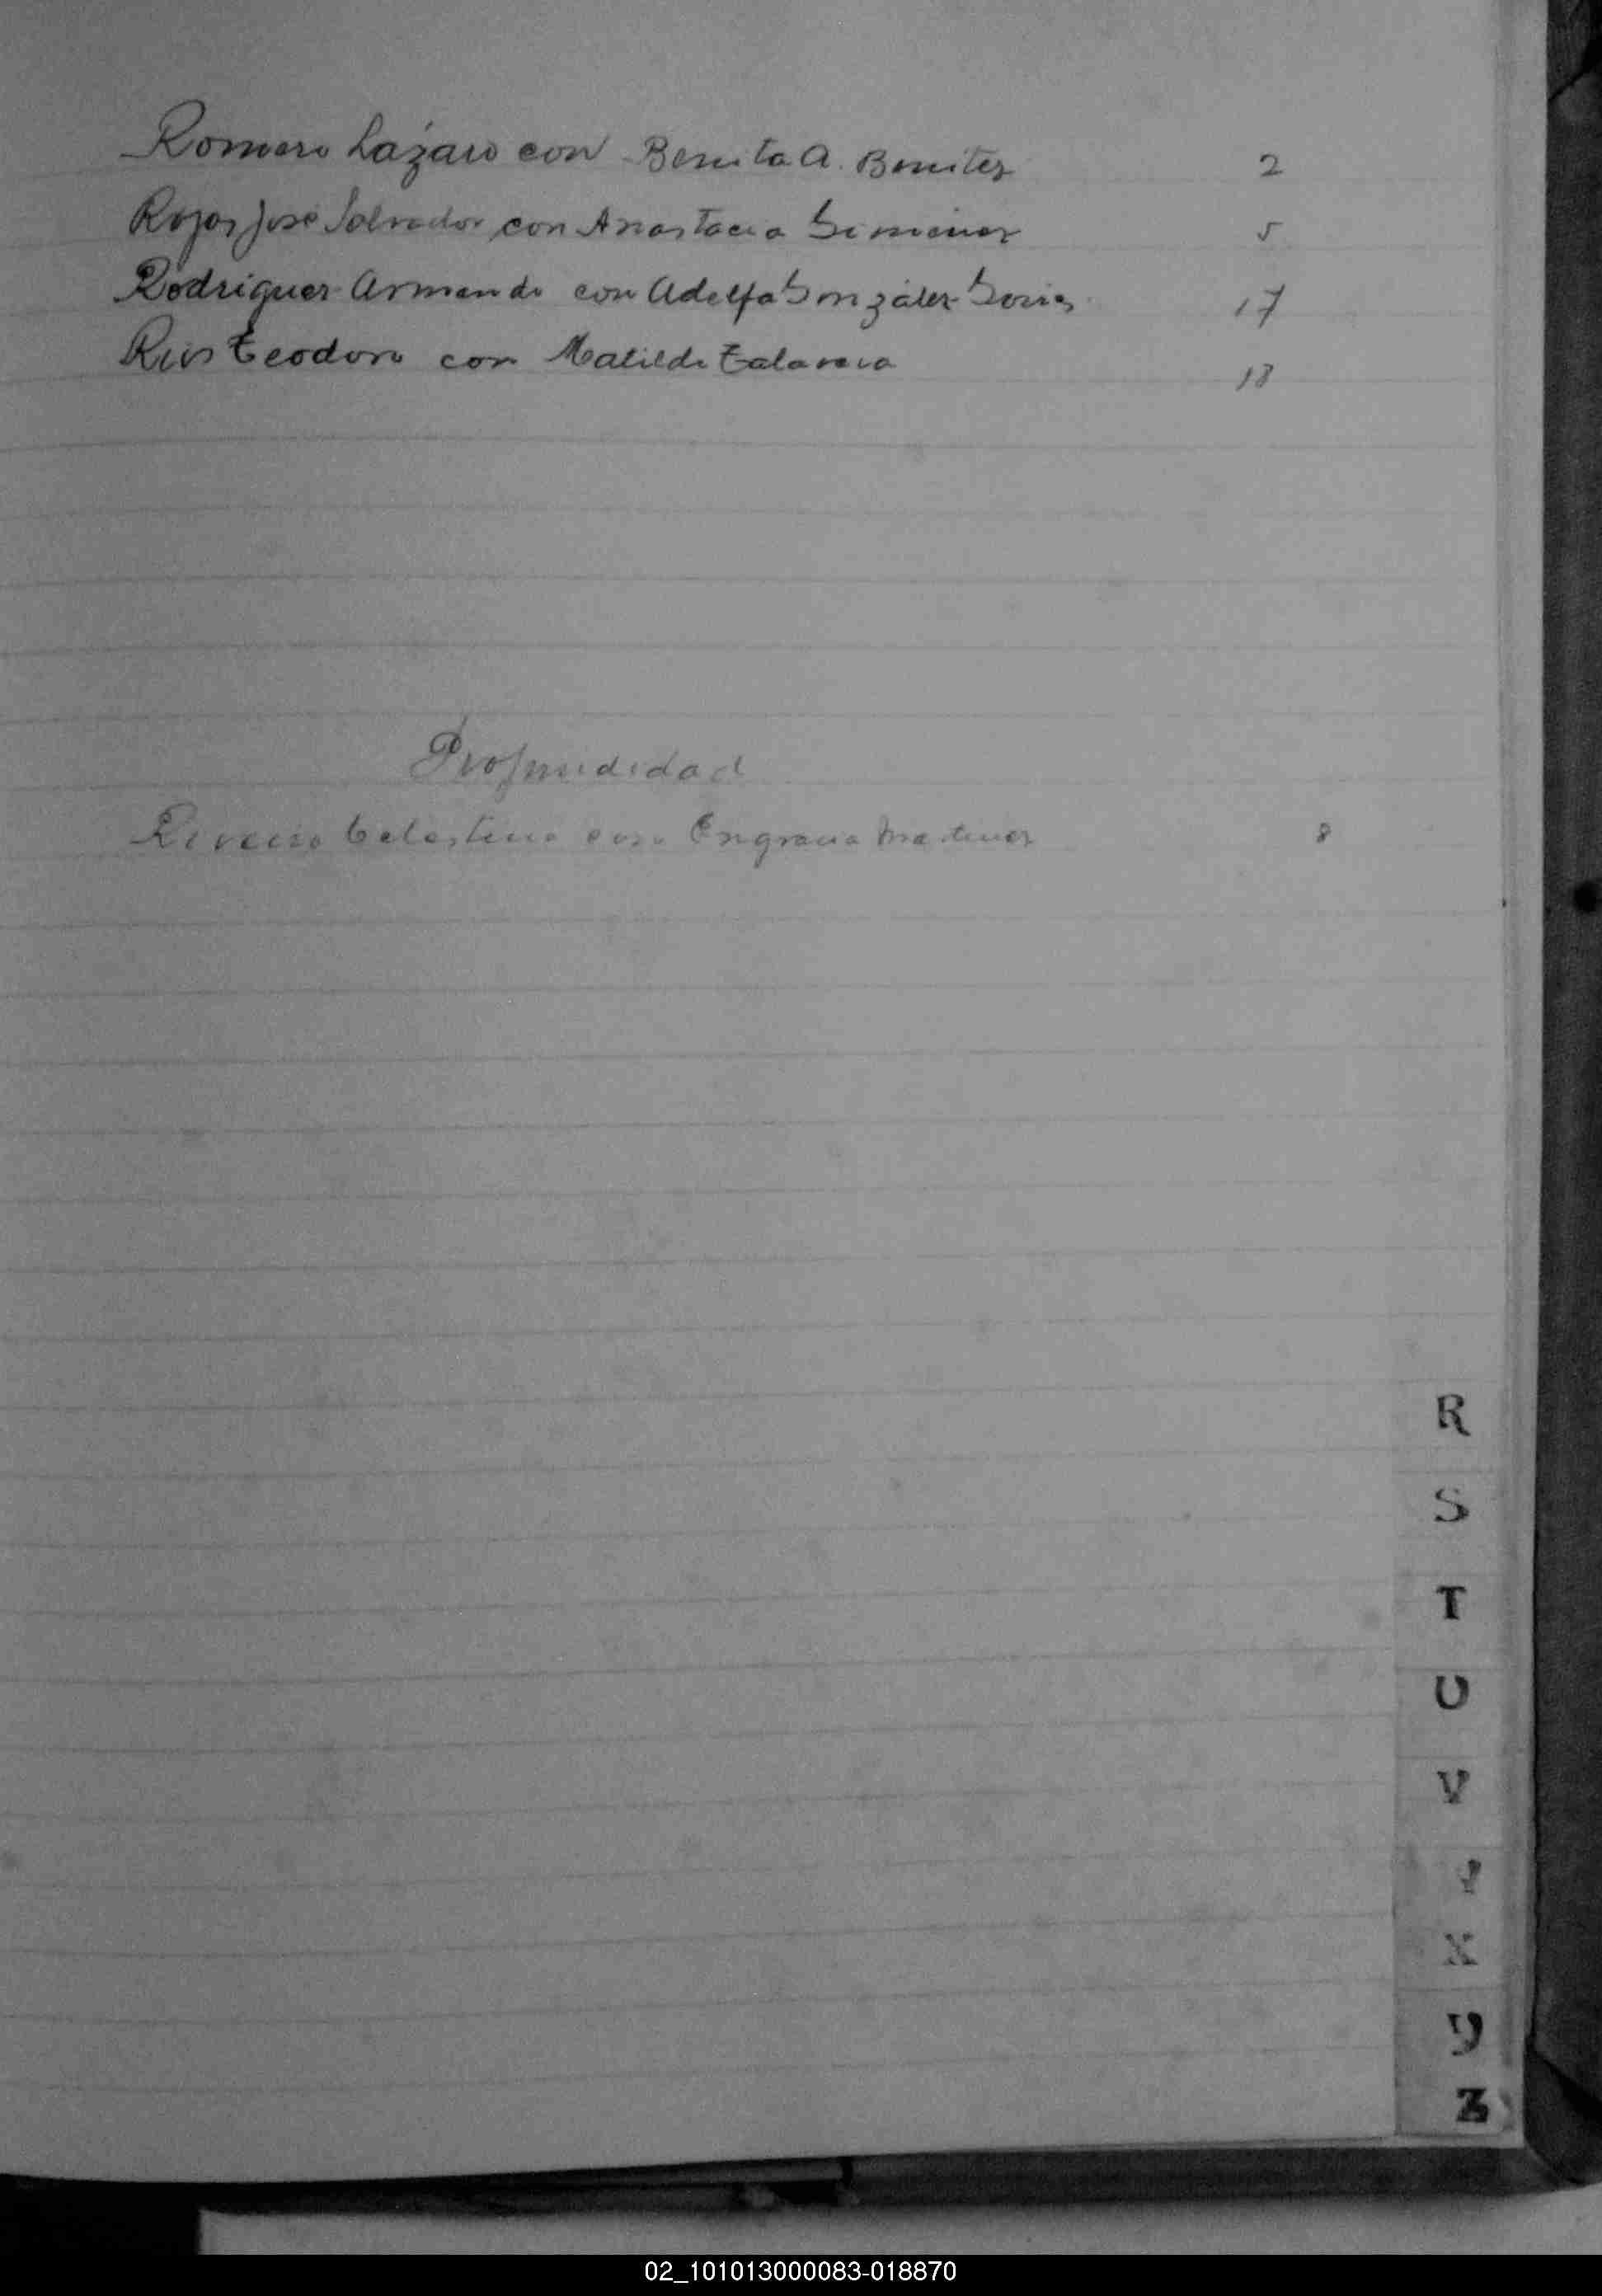 Romero Lázaro con Benita A. Benitez 2
Rojas José Salvador con Anastacia Gimenez 5
Rodriguez Armando con Adelfa González 17
Rios Teodoro con Matilde Talavera 18
Profundidad
Riveiro Celestino con Engracia Martinez 8
R
S
T
U
V
X
Y
Z
02_101013000083-018870